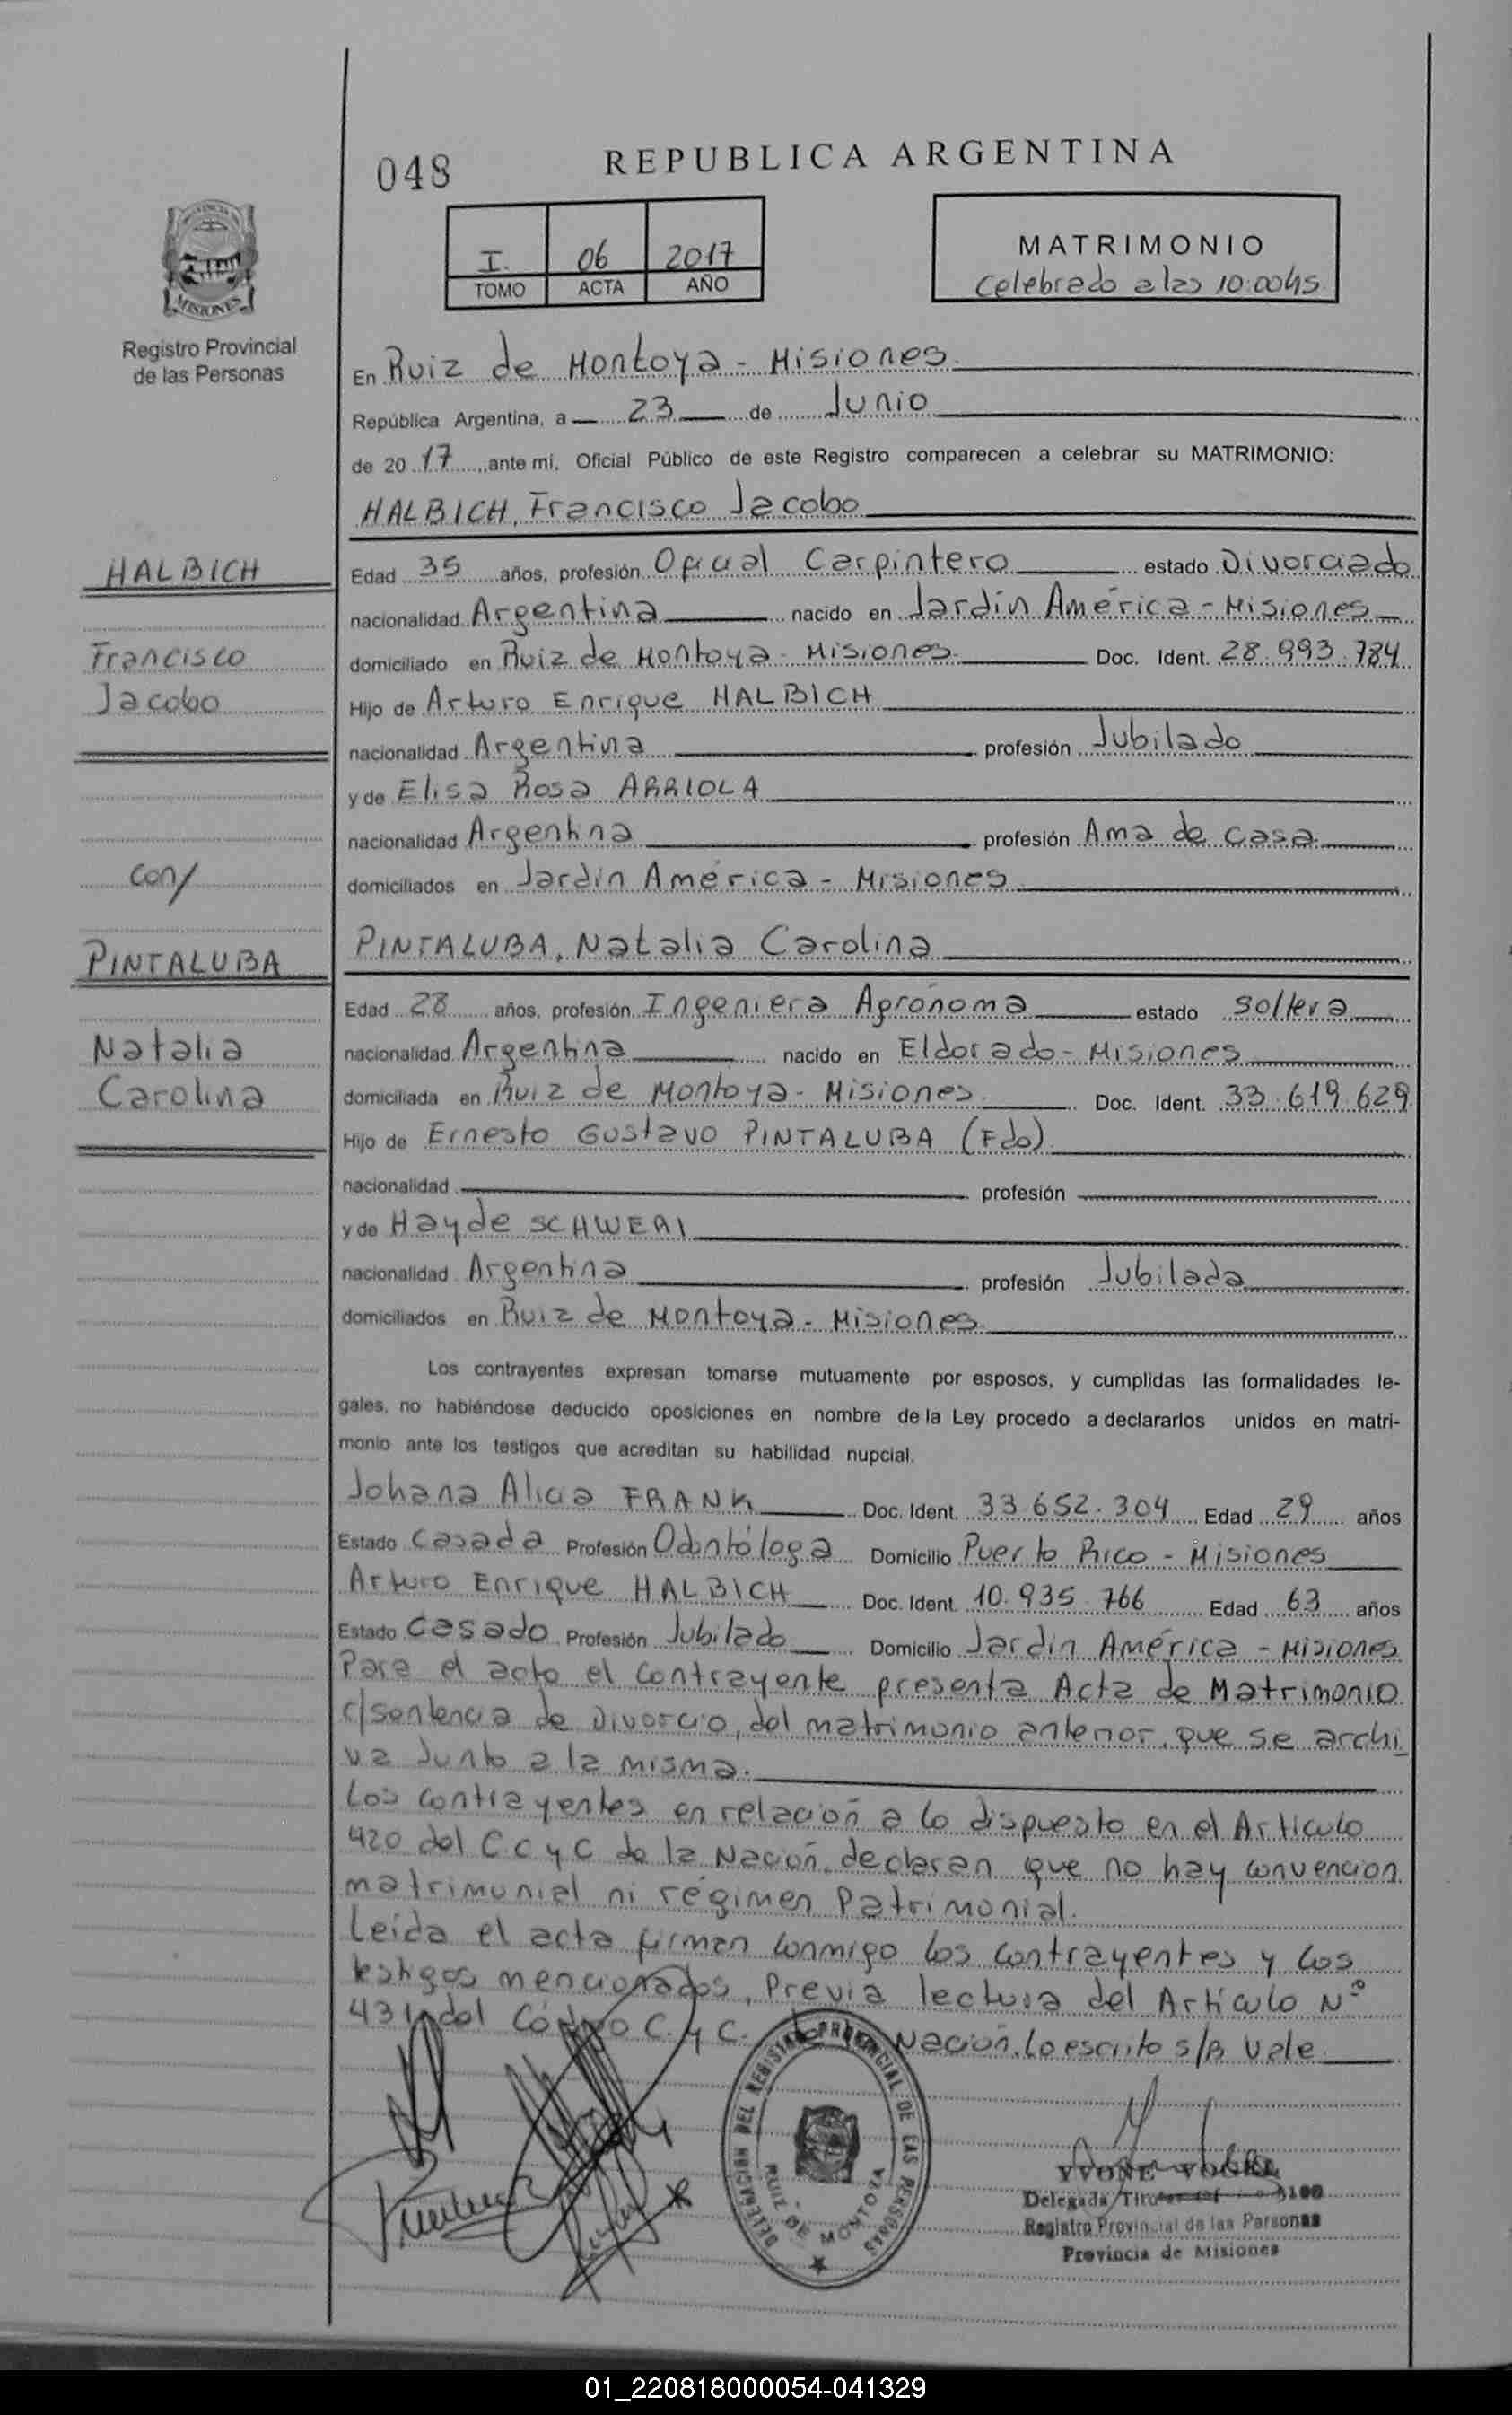 048
REPUBLICA ARGENTINA
I. 06 2017
TOMO ACTA AÑO
MATRIMONIO
Celebrado a las 10:00hs
MISIONES
Registro Provincial
de las Personas
En Ruiz de Montoya - Misiones
República Argentina, a 23 de Junio
de 20 17, ante mí, Oficial Público de este Registro comparecen a celebrar su MATRIMONIO:
HALBICH, Francisco Jacobo
HALBICH
Francisco
Jacobo
Edad 35 años, profesión Oficial Carpintero estado Divorciado
nacionalidad Argentina nacido en Jardín América - Misiones
domiciliado en Ruiz de Montoya - Misiones Doc. Ident. 28.993.784
Hijo de Arturo Enrique HALBICH
nacionalidad Argentina profesión Jubilado
y de Elisa Rosa ARRIOLA
nacionalidad Argentina profesión Ama de casa
domiciliados en Jardín América - Misiones
con/
PINTALUBA
Natalia
Carolina
PINTALUBA, Natalia Carolina
Edad 28 años, profesión Ingeniera Agrónoma estado Soltera
nacionalidad Argentina nacido en Eldorado - Misiones
domiciliada en Ruiz de Montoya - Misiones Doc. Ident. 33.619.629
Hijo de Ernesto Gustavo PINTALUBA (Fdo)
nacionalidad profesión
y de Hayde SCHWERI
nacionalidad Argentina profesión Jubilada
domiciliados en Ruiz de Montoya - Misiones
Los contrayentes expresan tomarse mutuamente por esposos, y cumplidas las formalidades le-
gales, no habiéndose deducido oposiciones en nombre de la Ley procedo a declararlos unidos en matri-
monio ante los testigos que acreditan su habilidad nupcial.
Johana Alicia FRANK Doc. Ident. 33.652.304 Edad 29 años
Estado Casada Profesión Odontóloga Domicilio Puerto Rico - Misiones
Arturo Enrique HALBICH Doc. Ident. 10.935.766 Edad 63 años
Estado Casado Profesión Jubilado Domicilio Jardín América - Misiones
Para el acto el contrayente presenta Acta de Matrimonio
c/sentencia de Divorcio, del matrimonio anterior, que se archi
va Junto a la misma.
Los contrayentes en relación a lo dispuesto en el Articulo
420 del C.C y C de la Nación, declaran que no hay convencion
matrimonial ni régimen Patrimonial.
Leída el acta firman conmigo los contrayentes y los
testigos mencionados, Previa lectura del Artículo Nº
431 del Código C. y C. Nación. Lo escrito s/B Vale
DELEGACION DEL REGISTRO PROVINCIAL DE LAS PERSONAS
RUIZ DE MONTOYA
YVONE VOGEL
Delegada Titular
Registro Provincial de las Personas
Provincia de Misiones
01_220818000054-041329